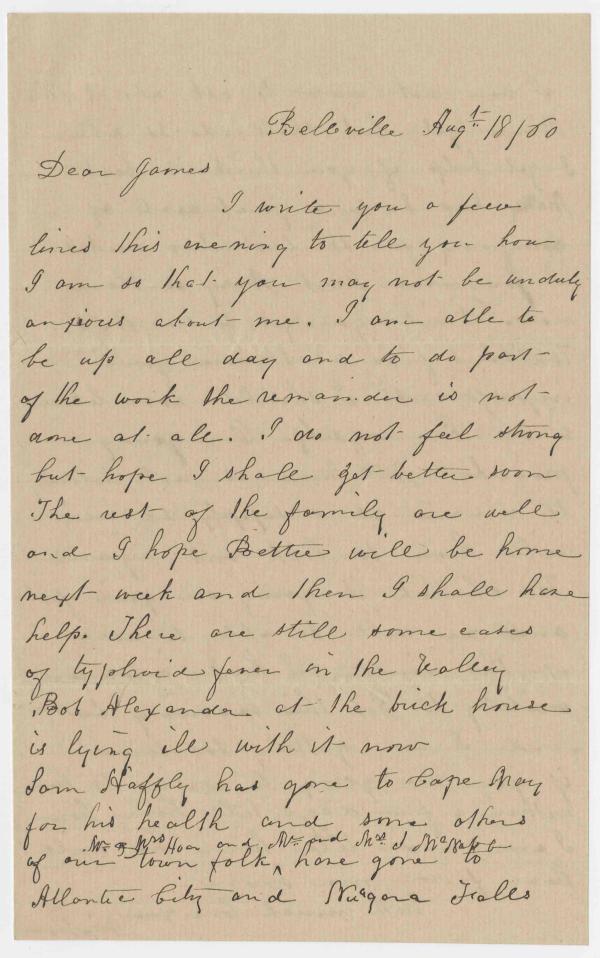 Belleville Augt 18/60
Dear James
I write you a few
lines this evening to tell you how
I am so that you may not be unduly
anxious about me. I am able to
be up all day and to do part
of the work the remainder is not
done at all. I do not feel strong
but hope I shall get better soon
The rest of the family are well
and I hope Bettie will be home
next week and then I shall have
help. There are still some cases
of typhoid fever in the Valley
Bob Alexander at the brick house
is lying ill with it now
Sam Haffly has gone to Cape May
for his health and some others
Mr & Mrs Hoar and Mr and Mrs J McNabb
of our town folk ^ have gone to
Atlantic City and Niagara Falls